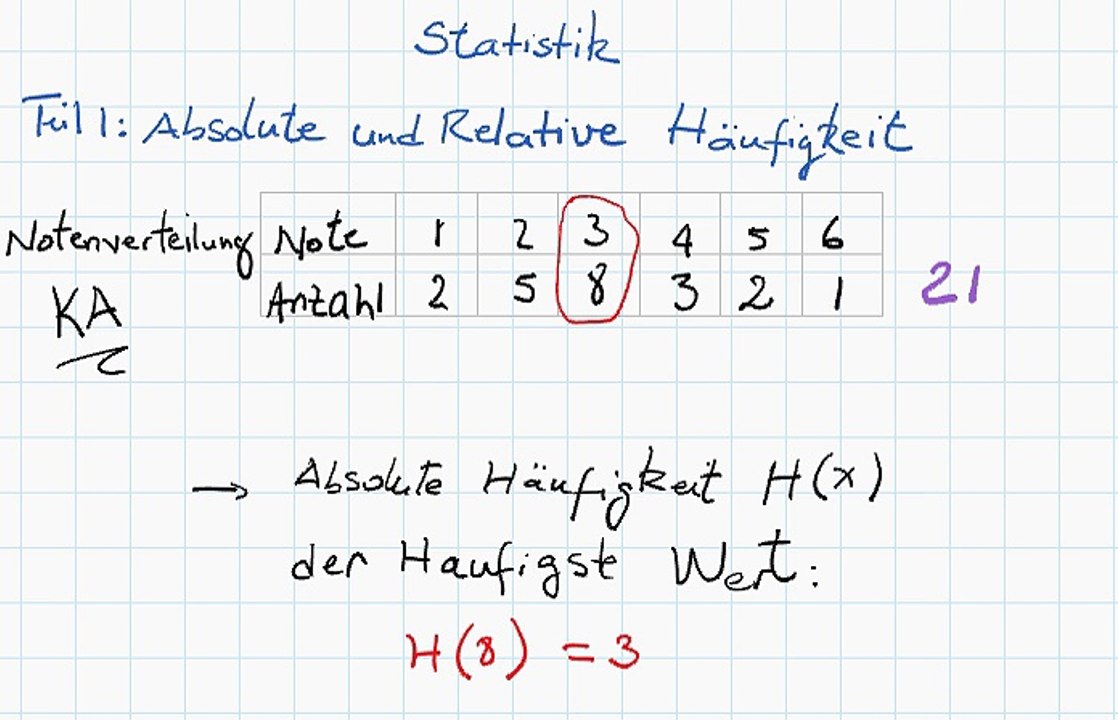 Statistik
Teil 1: Absolute und Relative Häufigkeit
Notenverteilung Note 1 2 3 4 5 6
KA Anzahl 2 5 8 3 2 1 21
→ Absolute Häufigkeit H(x)
der Haufigste Wert:
H(8) = 3